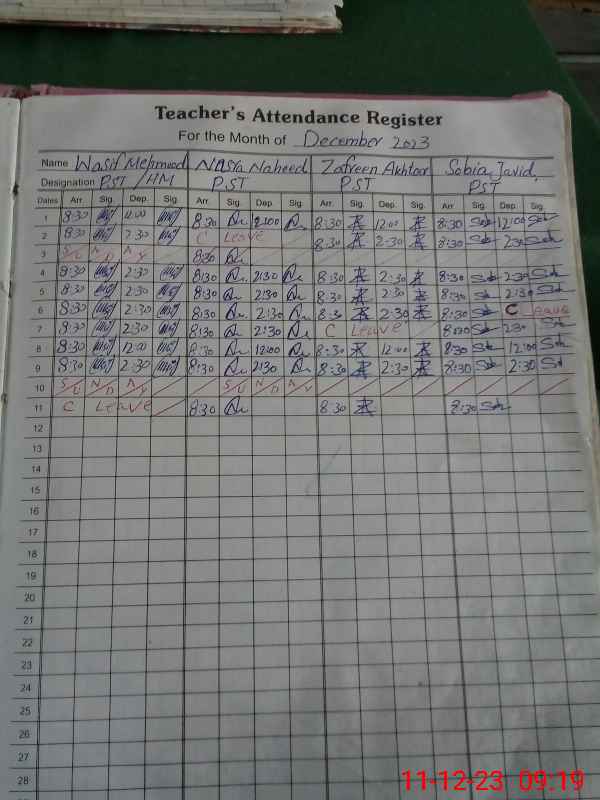 Teacher's Attendance Register
For the Month of December 2023
Name Wasif Mehmood Nasra Naheed Zafreen Akhtar Sobia Javid.
Designation PST / HM PST PST PST
Dates Arr. Sig. Dep. Sig. Arr. Sig. Dep. Sig. Arr. Sig. Dep. Sig. Arr. Sig. Dep. Sig.
1 8:30 12:00 8:30 12:00 8:30 12:00 8:30 Sob 12:00 Sob
2 8:30 2:30 C Leave 8:30 2:30 8:30 Sob 2:30 Sob
3 S U N D A Y 8:30
4 8:30 2:30 8:30 2:30 8:30 2:30 8:30 Sob 2:30 Sob
5 8:30 2:30 8:30 2:30 8:30 2:30 8:30 Sob 2:30 Sob
6 8:30 2:30 8:30 2:30 8:30 2:30 8:30 Sob C Leave
7 8:30 2:30 8:30 2:30 C Leave 8:30 Sob 2:30 Sob
8 8:30 12:00 8:30 12:00 8:30 12:00 8:30 Sob 12:00 Sob
9 8:30 2:30 8:30 2:30 8:30 2:30 8:30 Sob 2:30 Sob
10 S U N D A Y S U N D A Y
11 C Leave 8:30 8:30 8:30 Sob
12
13
14
15
16
17
18
19
20
21
22
23
24
25
26
27
28
11-12-23 09:19